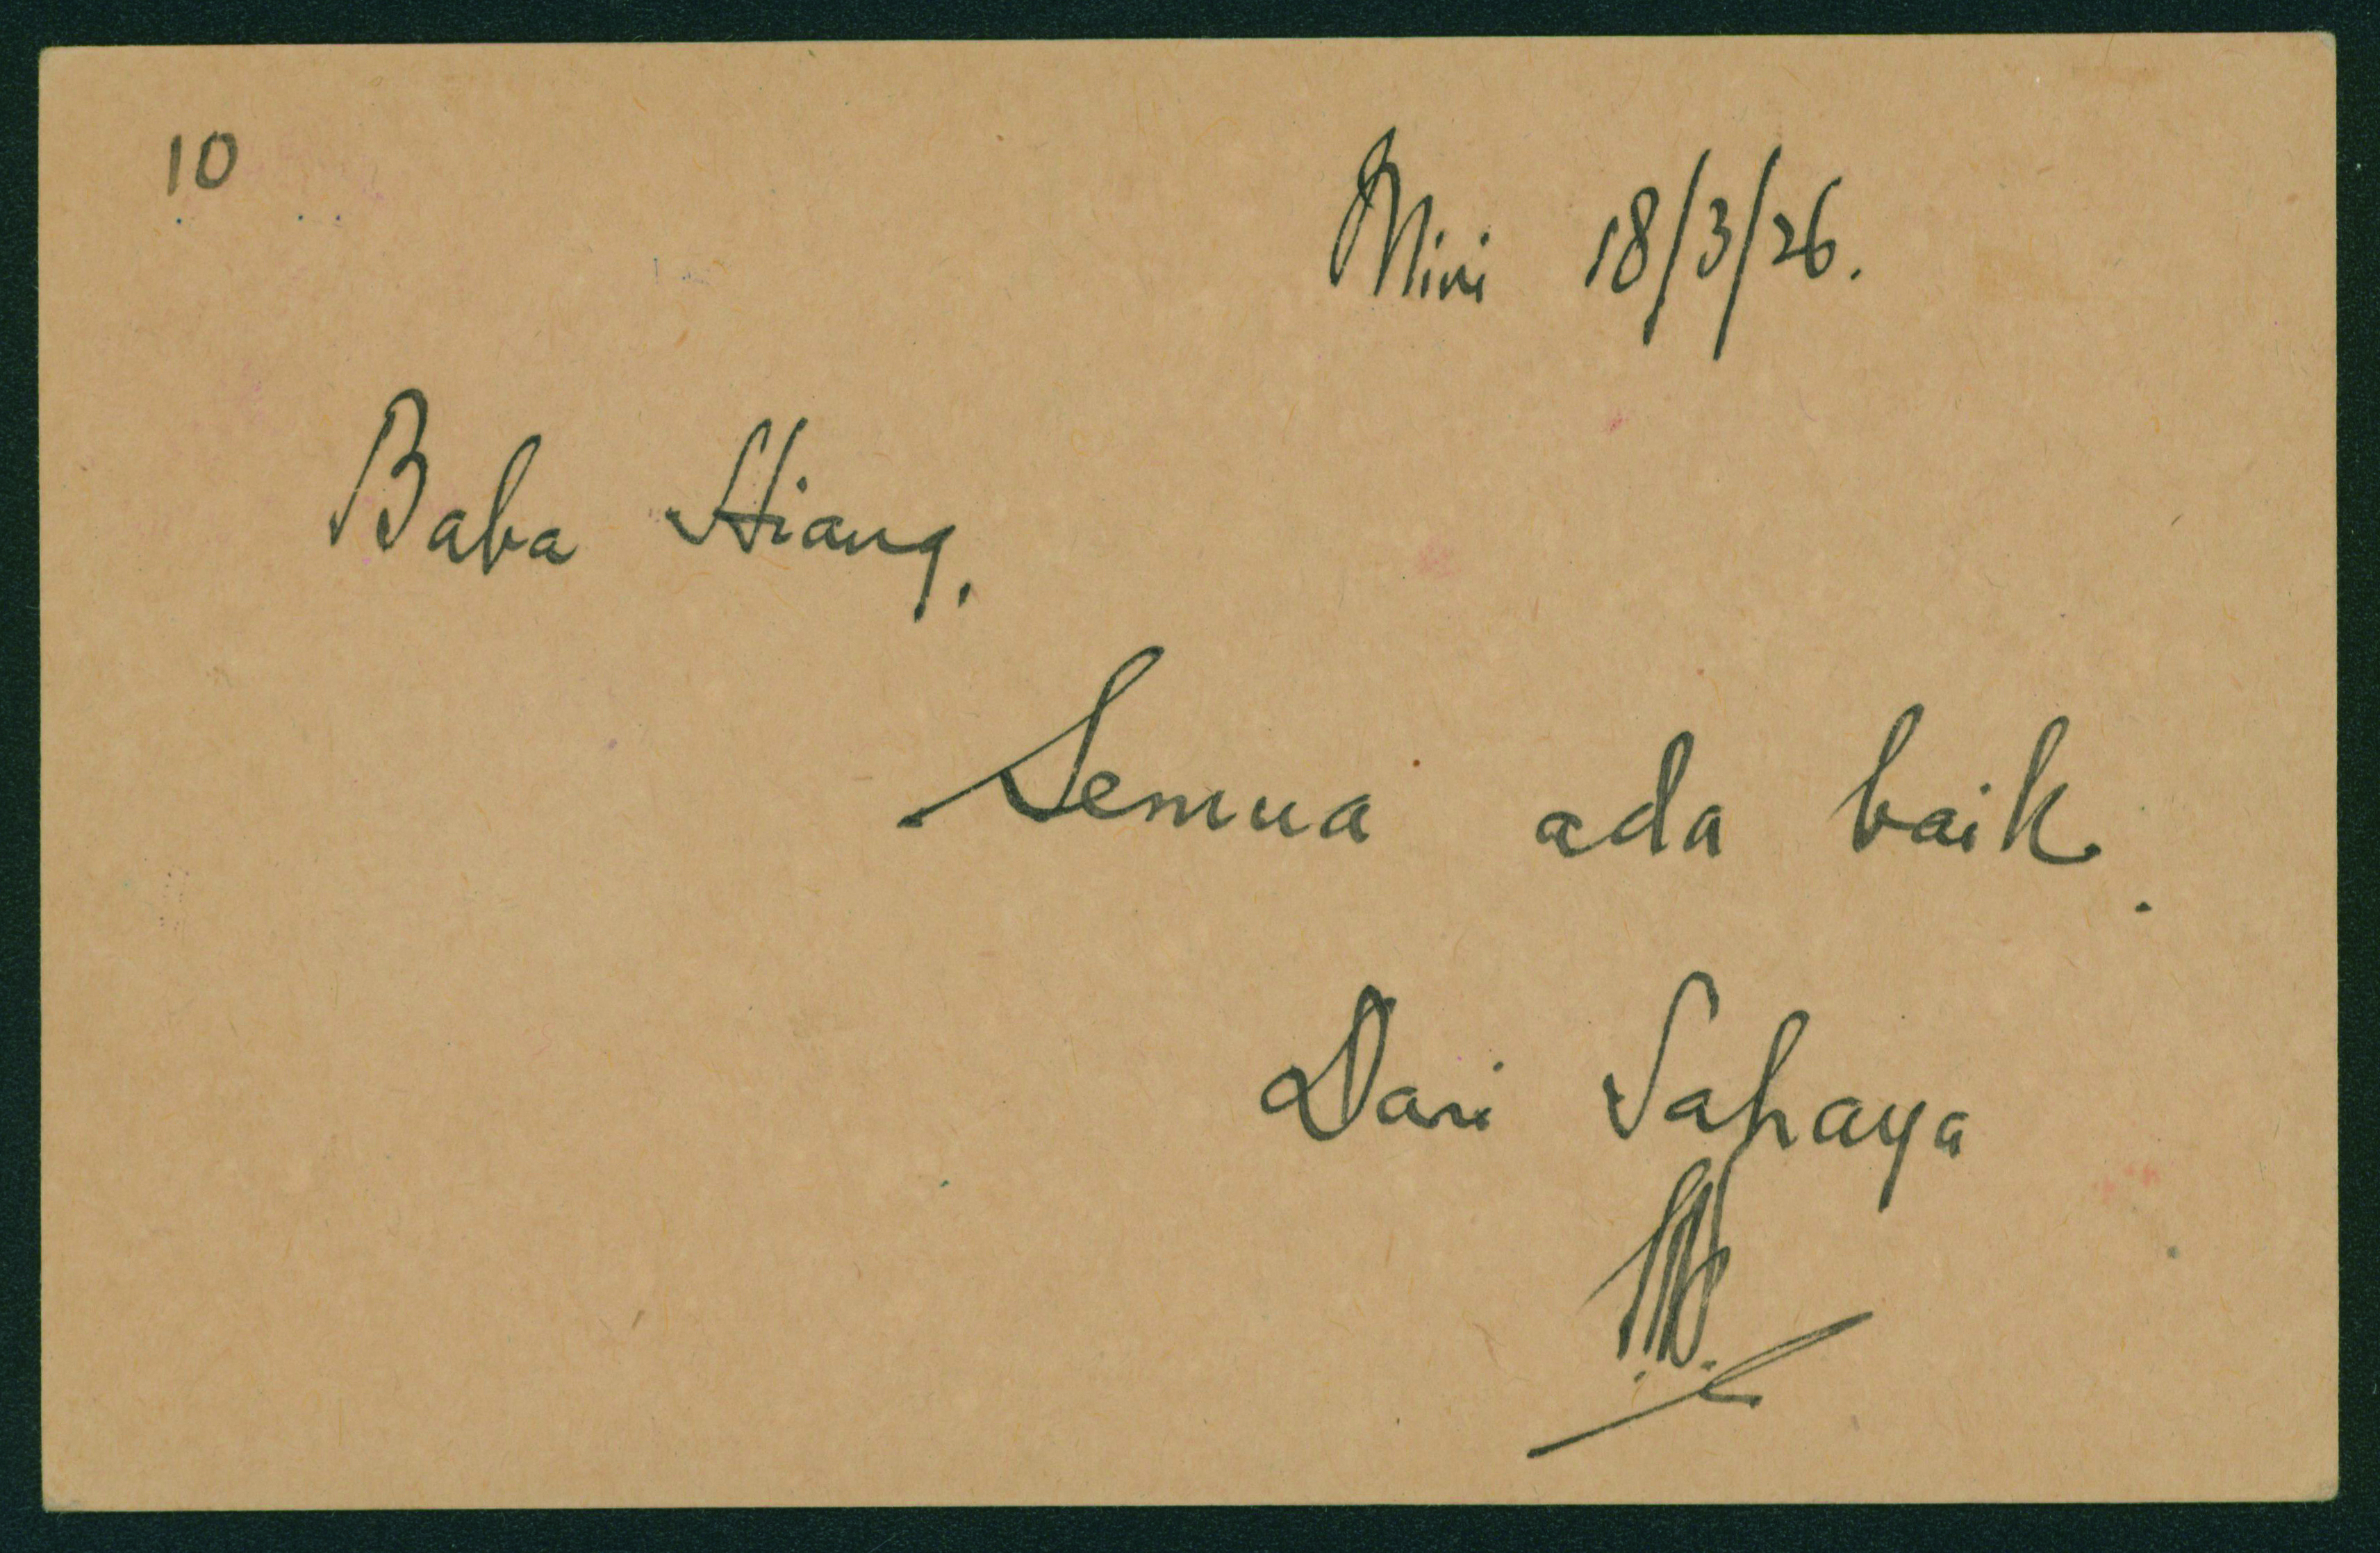 10
Miri 18/3/26.
Baba Hiang,
Semua ada baik.
Dari Sahaya